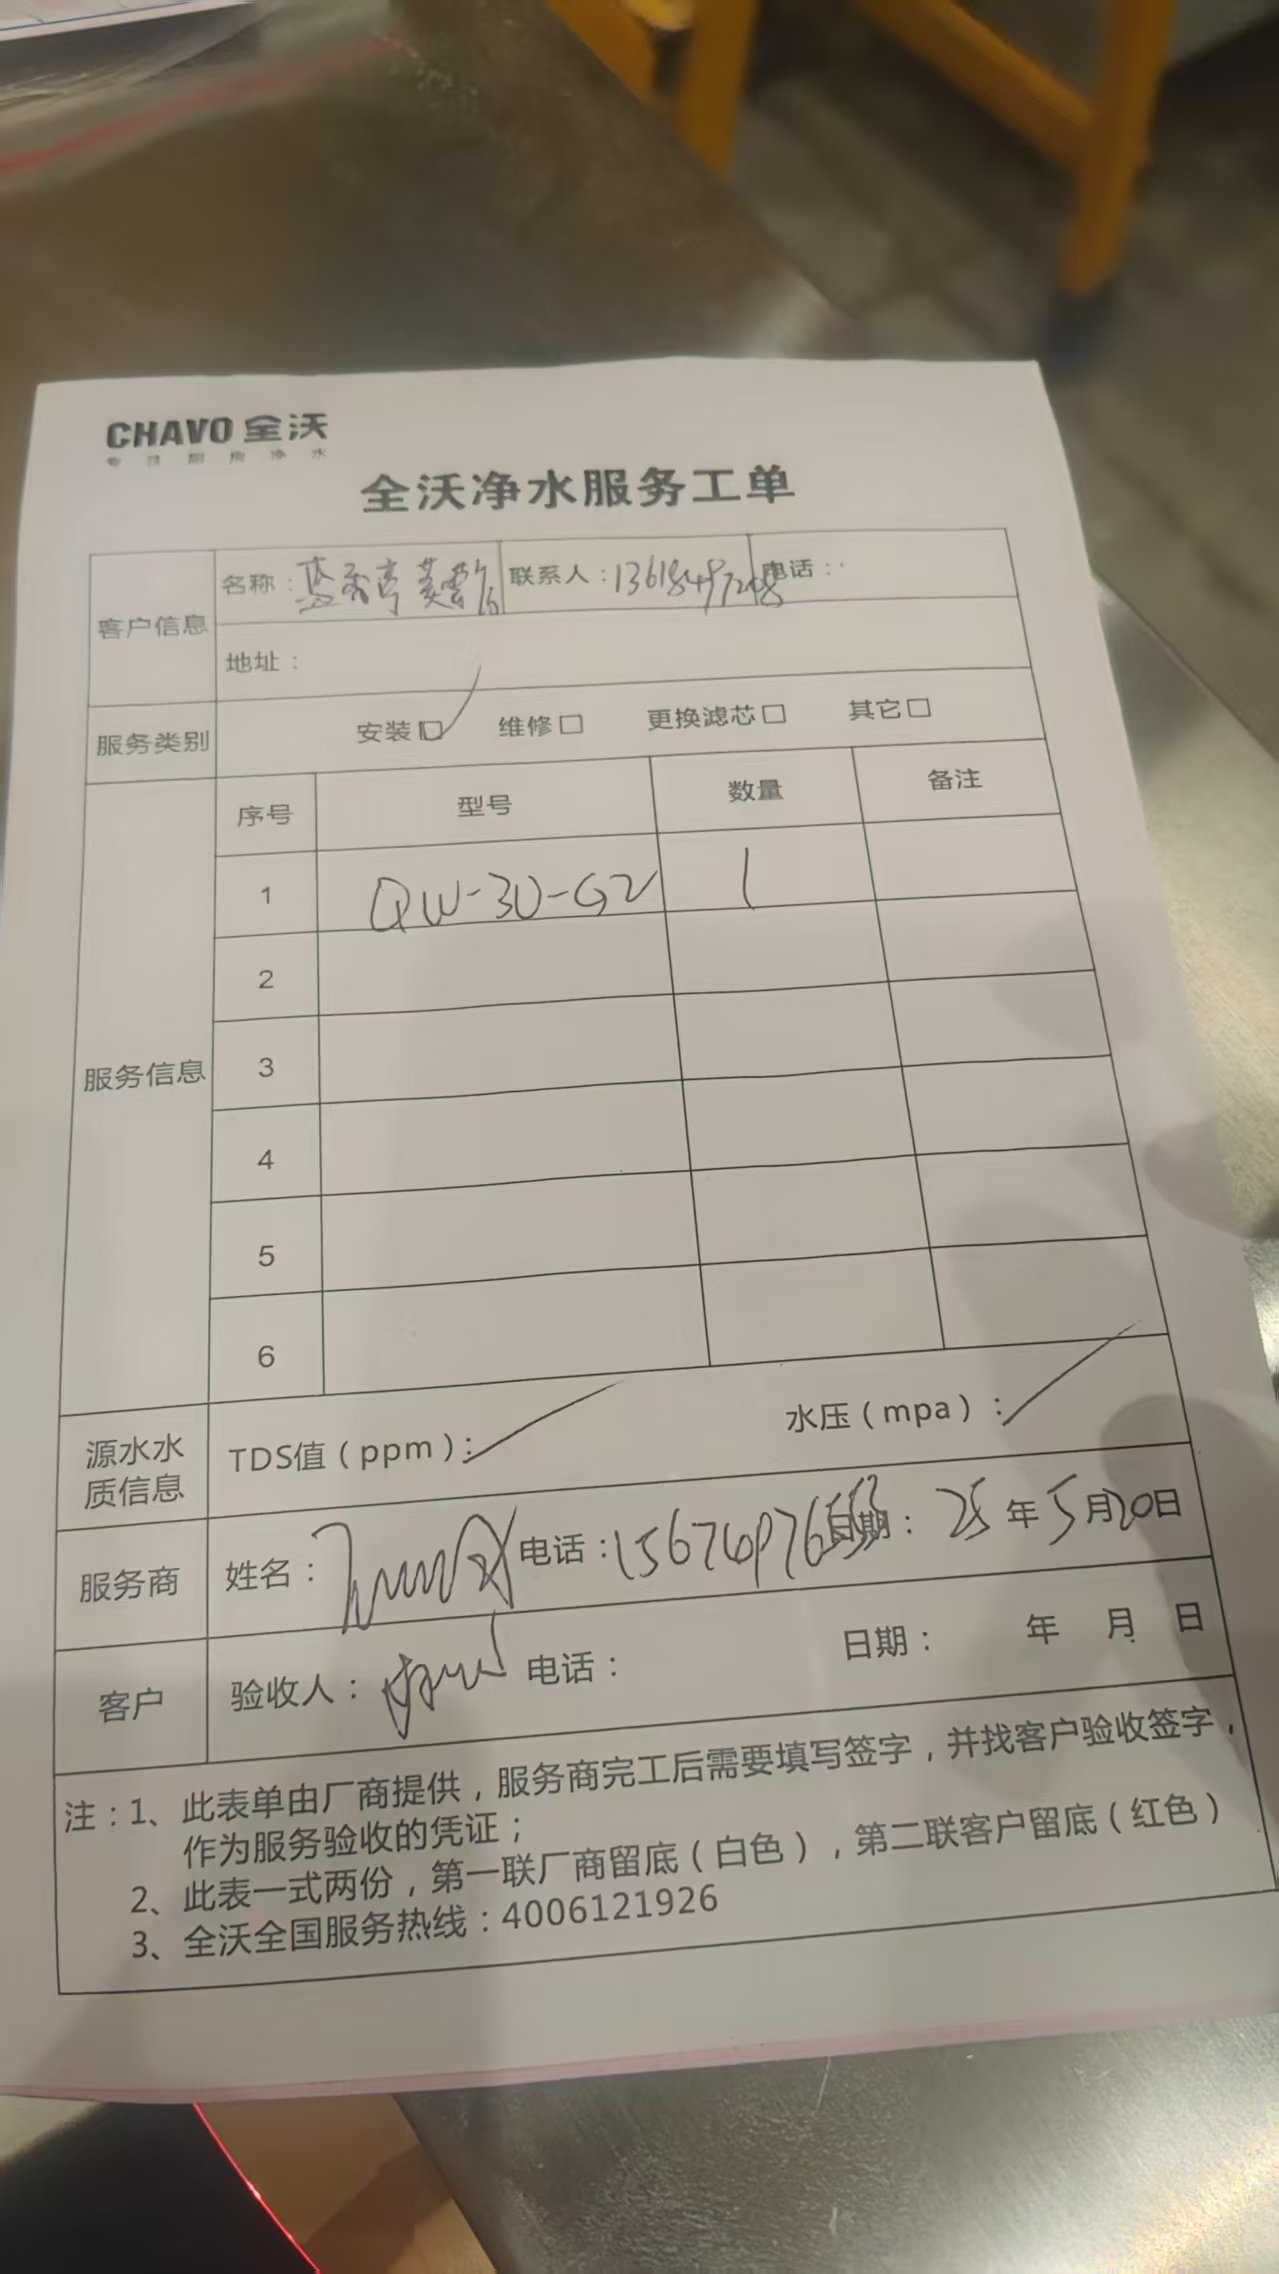 CHAVO 全沃
专注厨房净水
全沃净水服务工单
客户信息 名称： 联系人：13618497298 电话：
地址：
服务类别 安装 维修 更换滤芯 其它
序号 型号 数量 备注
服务信息
1 QW-30-G2 1
2
3
4
5
6
源水水质信息 TDS值（ppm）： 水压（mpa）：
服务商 姓名： 电话： 日期：25年5月20日
客户 验收人： 电话： 日期： 年 月 日
注：1、此表单由厂商提供，服务商完工后需要填写签字，并找客户验收签字，
作为服务验收的凭证；
2、此表一式两份，第一联厂商留底（白色），第二联客户留底（红色）
3、全沃全国服务热线：4006121926